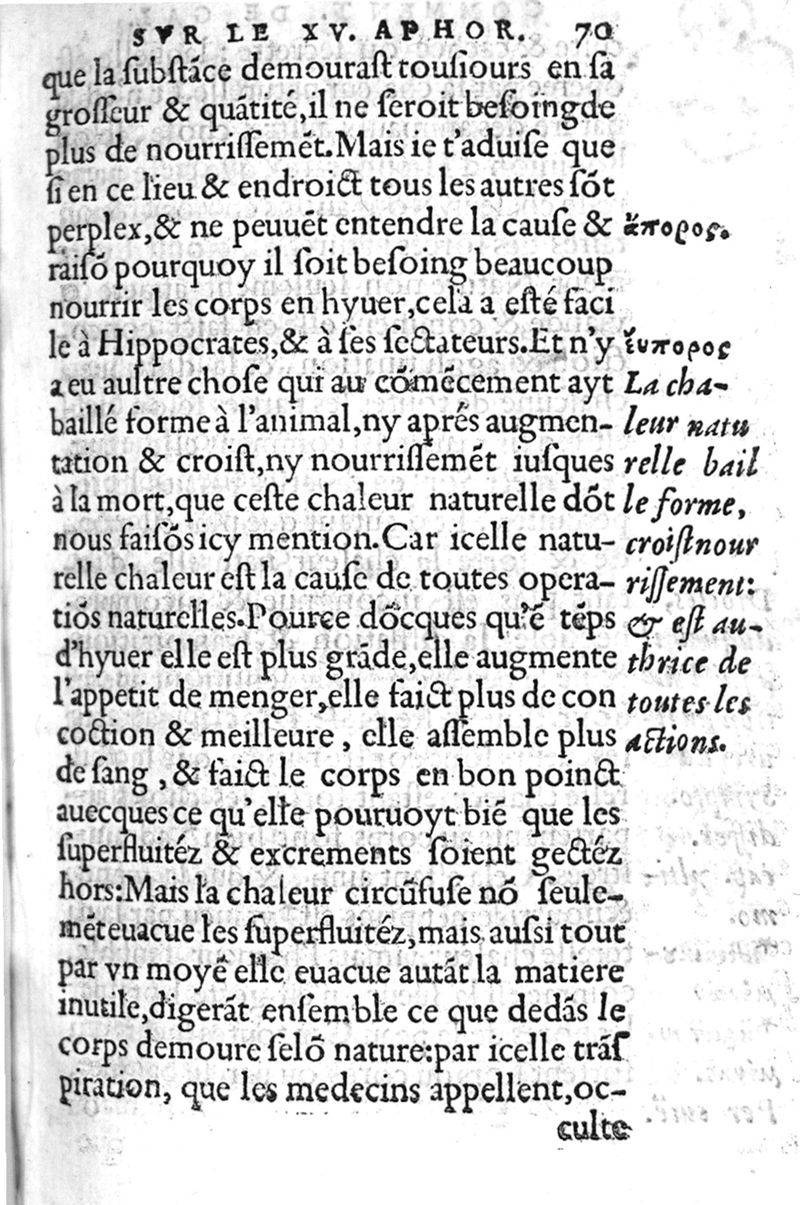 SVR LE XV. APHOR. 70
que la ſubſtãce demouraſt touſiours en ſa
groſſeur & quãtité,il ne ſeroit beſoingde
plus de nourriſſemẽt.Mais ie t'aduiſe que
ſi en ce lieu & endroict tous les autres ſõt
perplex,& ne peuuẽt entendre la cauſe &
raiſõ pourquoy il ſoit beſoing beaucoup
nourrir les corps en hyuer,cela a eſté faci
le à Hippocrates,& à ſes ſectateurs.Et n'y
a eu aultre choſe qui au cõmẽcement ayt
baillé forme à l'animal,ny aprés augmen-
tation & croiſt,ny nourriſſemẽt iuſques
à la mort,que ceſte chaleur naturelle dõt
nous faiſõs icy mention.Car icelle natu-
relle chaleur eſt la cauſe de toutes opera-
tiõs naturelles.Pource dõcques qu'ẽ tẽps
d'hyuer elle eſt plus grãde,elle augmente
l'appetit de menger,elle faict plus de con
coction & meilleure, elle aſſemble plus
de ſang, & faict le corps en bon poinct
auecques ce qu'elle pouruoyt biẽ que les
ſuperfluitéz & excrements ſoient gectéz
hors:Mais la chaleur circũfuſe nõ ſeule-
mẽt euacue les ſuperfluitéz,mais auſsi tout
par vn moyẽ elle euacue autãt la matiere
inutile,digerãt enſemble ce que dedãs le
corps demoure ſelõ nature:par icelle trãſ
piration, que les medecins appellent,oc-
culte
ἄπορος.
ἔυπορος
La cha-
leur natu
relle bail
le forme,
croiſt nour
riſſement:
& eſt au-
thrice de
toutes les
actions.